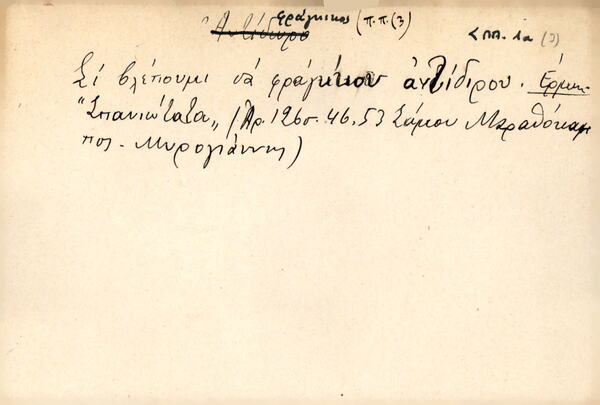 Ἀντίδωρο φράγκικος (π.π.(3) ΣΠΠ. 1α (3)
Σί βλέπουμι σά φράγκικου ἀντίδιρου. Ἑρμην.
"Σπανιώτατα„ (Ἀρ. 126 σ. 46, 53 Σάμου Μαραθόκαμ
πος - Μυρογιάννης)